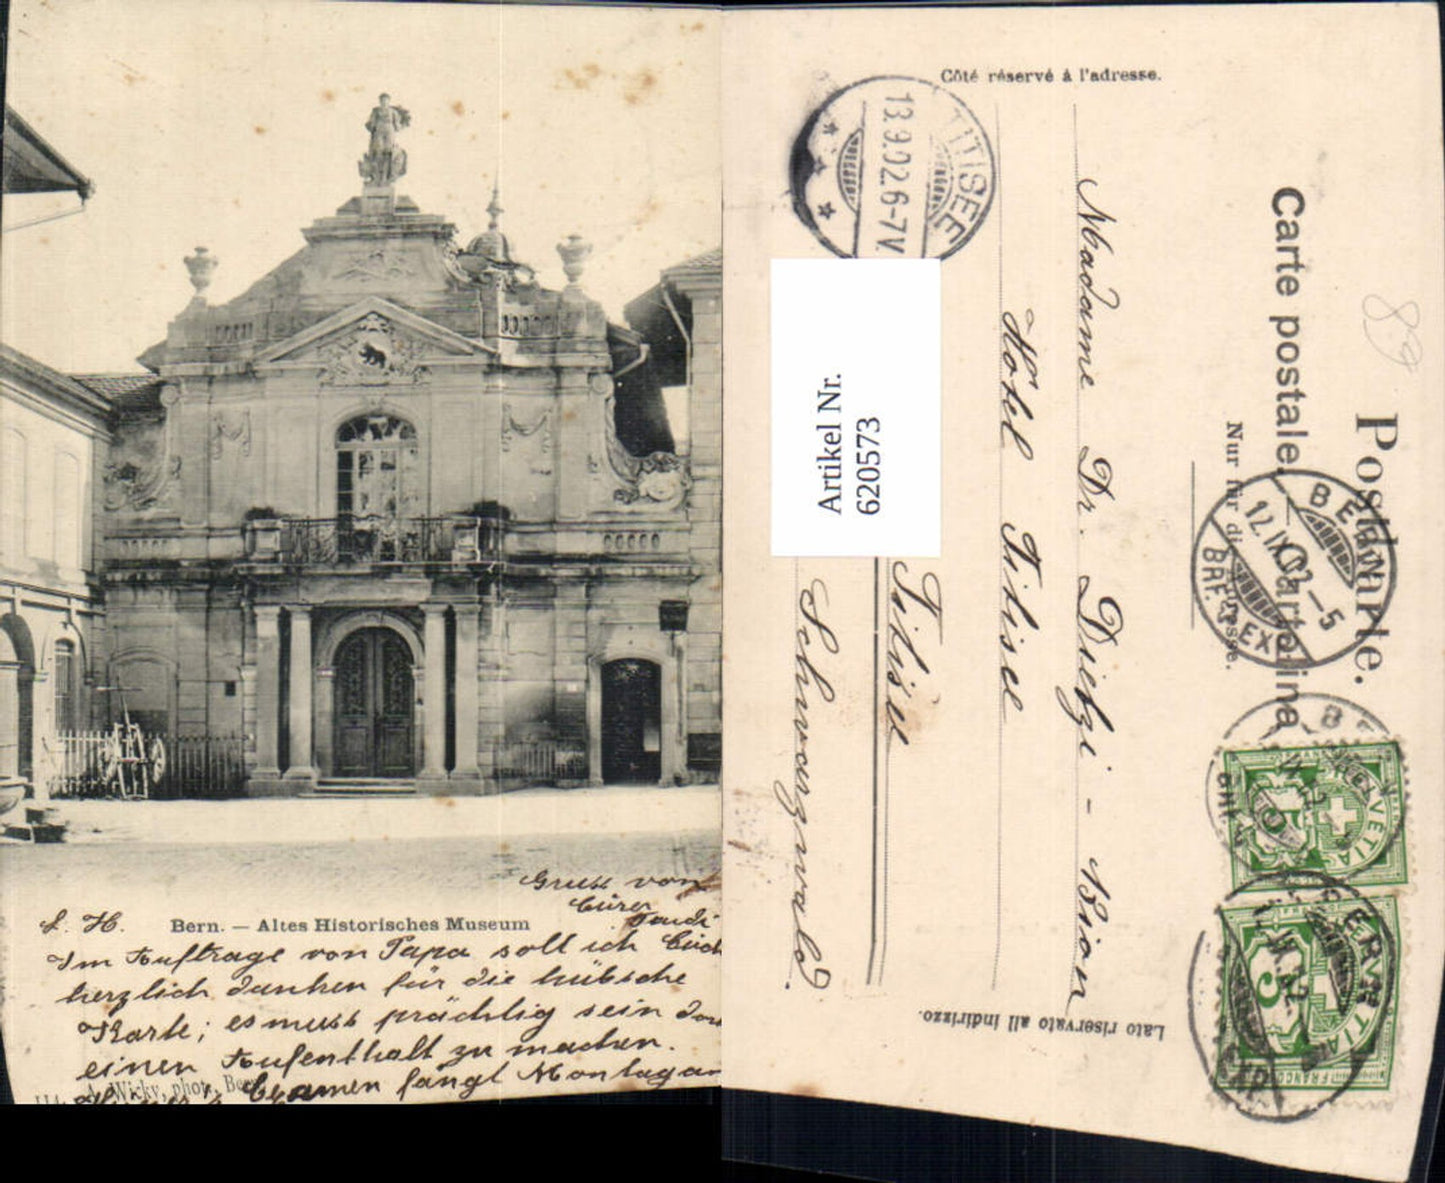 Gruss von
Eurer
L. H. Bern. — Altes Historisches Museum
Im Auftrage von Papa soll ich Euch
herzlich danken für die hübsche
Karte; es muss prächtig sein dort
einen Aufenthalt zu machen.
A. Wicky, phot., Bern
Examen fängt Montag an
Côté réservé à l'adresse.
TITISEE
13.9.02.6-7V.
Madame Dr. Dietzi - Bion
Hôtel Titisee
Titisee
Schwarzwald
Artikel Nr.
620573
Postkarte.
Carte postale. Cartolina
Nur für die Adresse.
Lato riservato all indirizzo.
BERN
12.IX.02.-5
BRF. EXP.
HELVETIA
5
HELVETIA
5
FRANCO
89